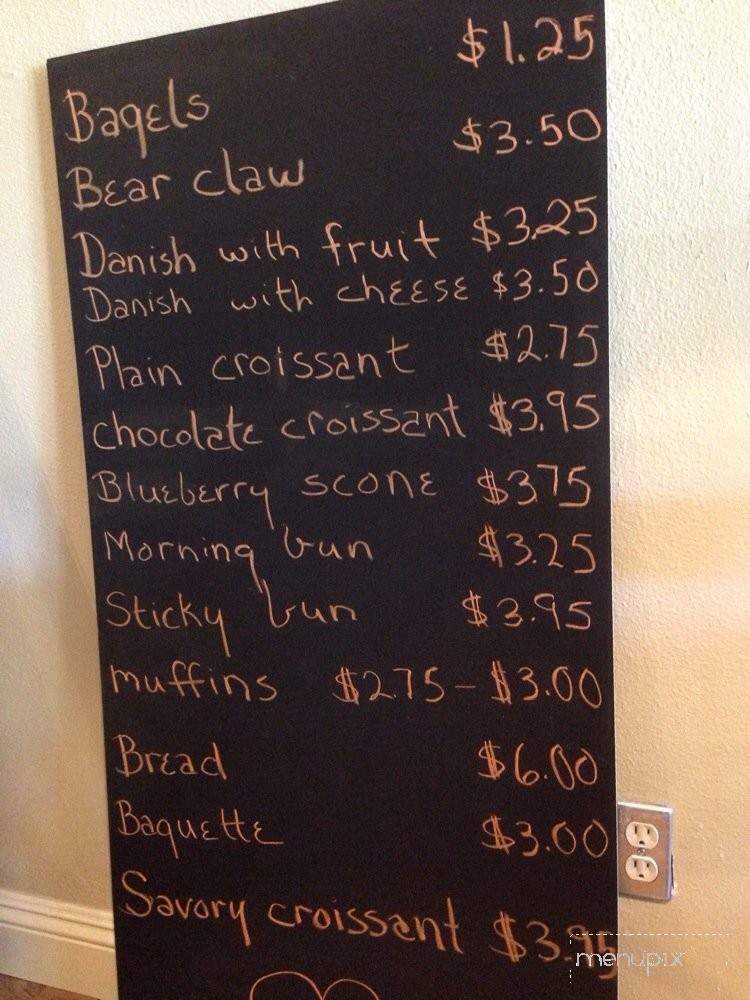 Bagels $1.25
Bear claw $3.50
Danish with fruit $3.25
Danish with cheese $3.50
Plain croissant $2.75
chocolate croissant $3.95
Blueberry scone $3.75
Morning bun $3.25
Sticky bun $3.95
muffins $2.75 - $3.00
Bread $6.00
Baquette $3.00
Savory croissant $3.95
menupix